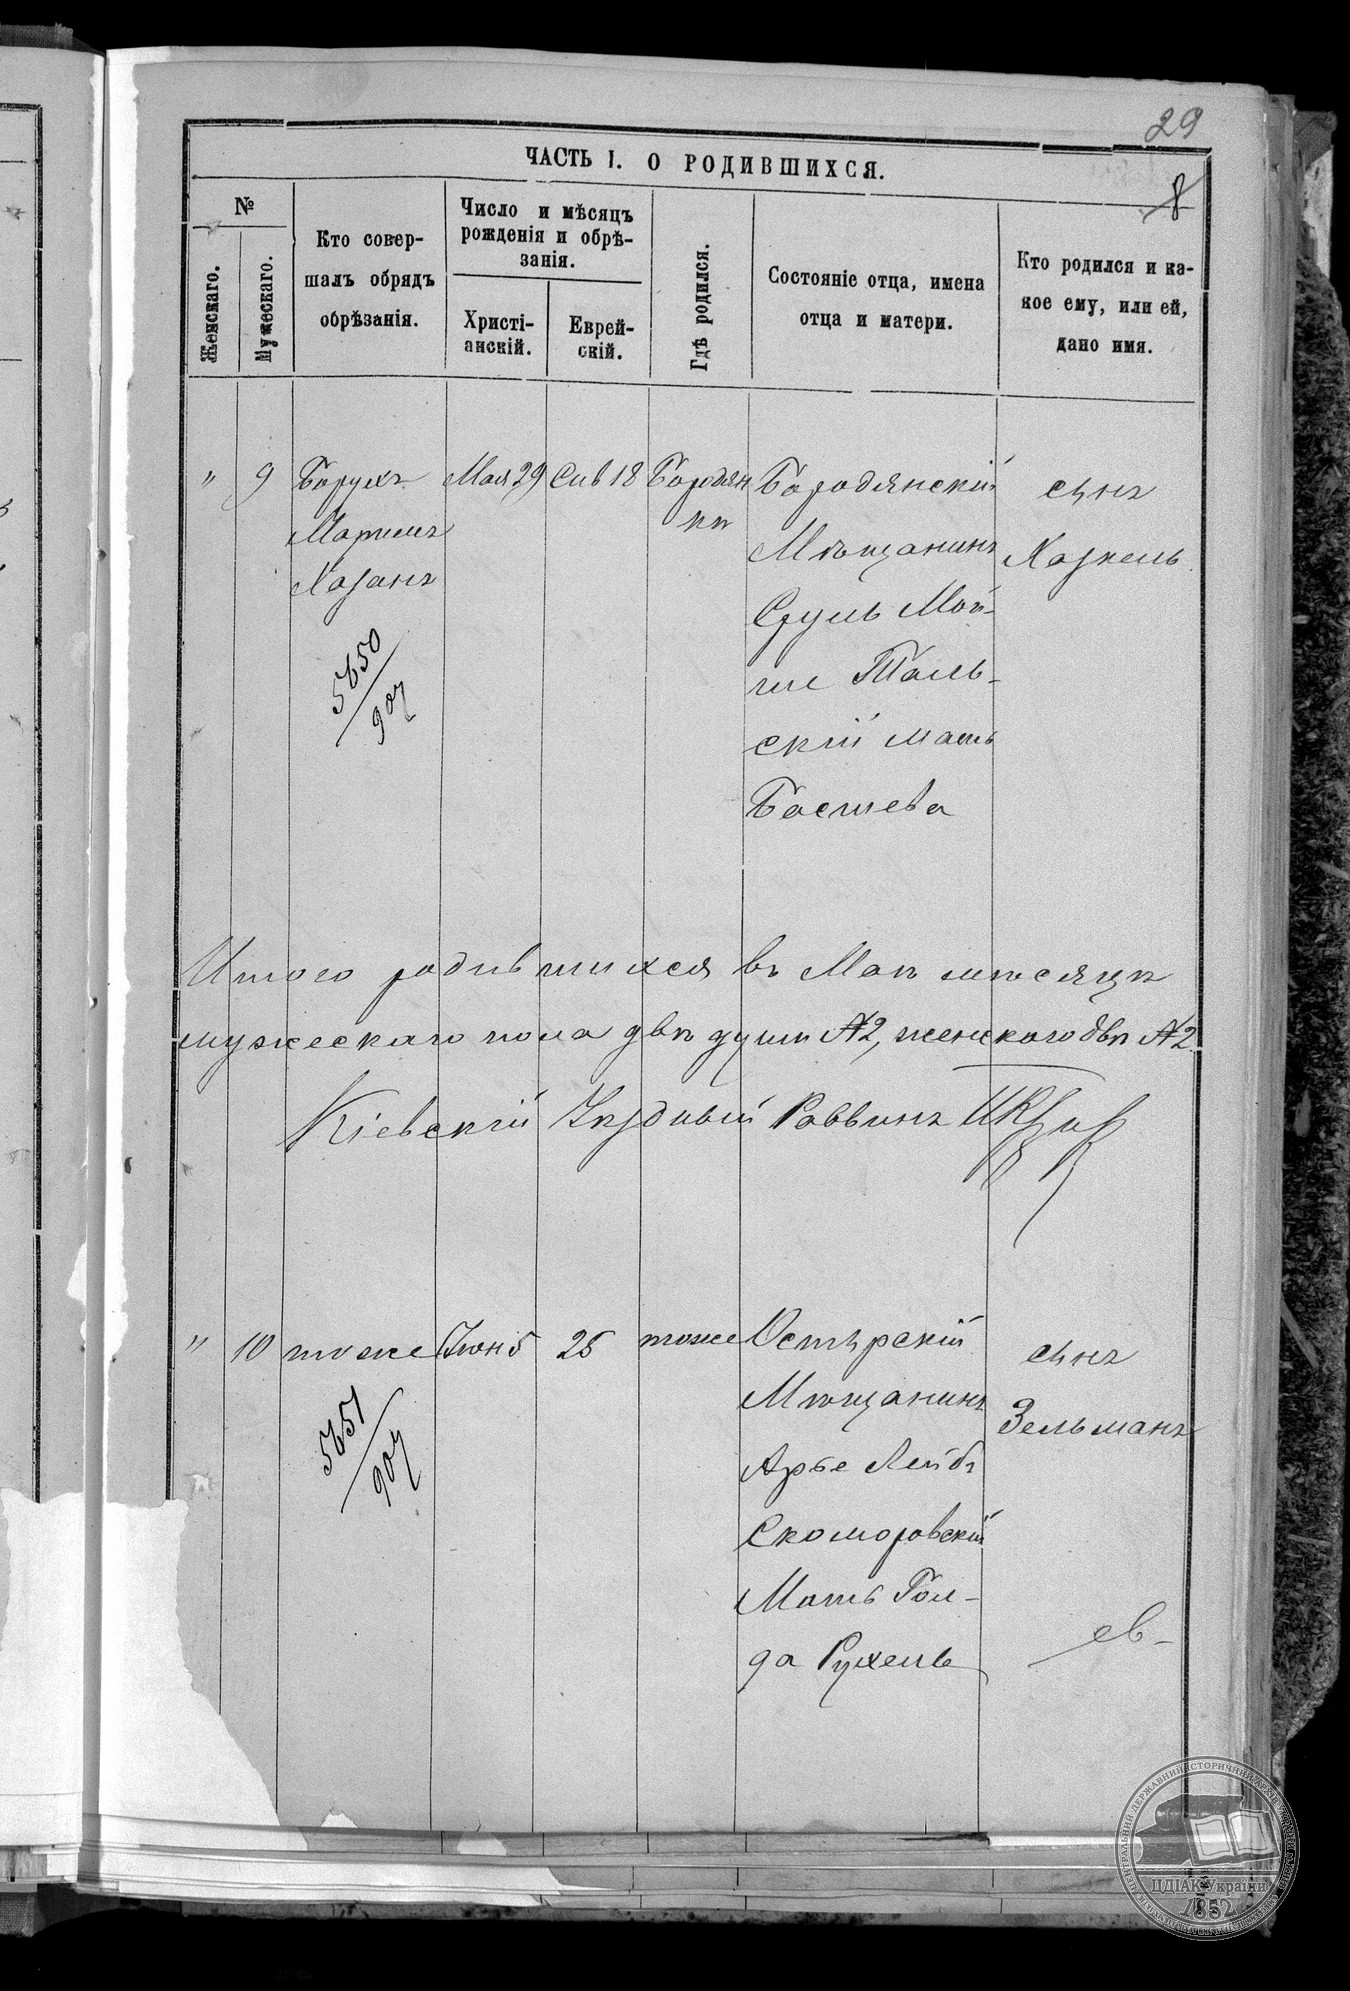 29
ЧАСТЬ I. О РОДИВШИХСЯ.
8
№
Женскаго.
Мужескаго.
Кто совер-
шалъ обрядъ
обрѣзанія.
Число и мѣсяцъ
рожденія и обрѣ-
занія.
Христі-
анскій.
Еврей-
скій.
Гдѣ родился.
Состояніе отца, имена
отца и матери.
Кто родился и ка-
кое ему, или ей,
дано имя.
" 9
Борухъ
Хазанъ
5650/907
Мая 29
Сив 18
Бородян
кѣ
Бородянскій
Мѣщанинъ
Сруль Мой-
ше Таль-
скій мать
Басшева
сынъ
Хаскель
Итого родившихся въ Маѣ мѣсяцѣ
мужескаго пола двѣ души №2, женскаго двѣ №2
Кіевскій Уѣздный Раввинъ
" 10
тоже
5651/907
Іюн 5
25
тоже
Остѣрскій
Мѣщанинъ
Арье Лейбъ
Скоморовскій
Мать Гол-
да Рухель
сынъ
Зельманъ
ЦДІАК України
1852